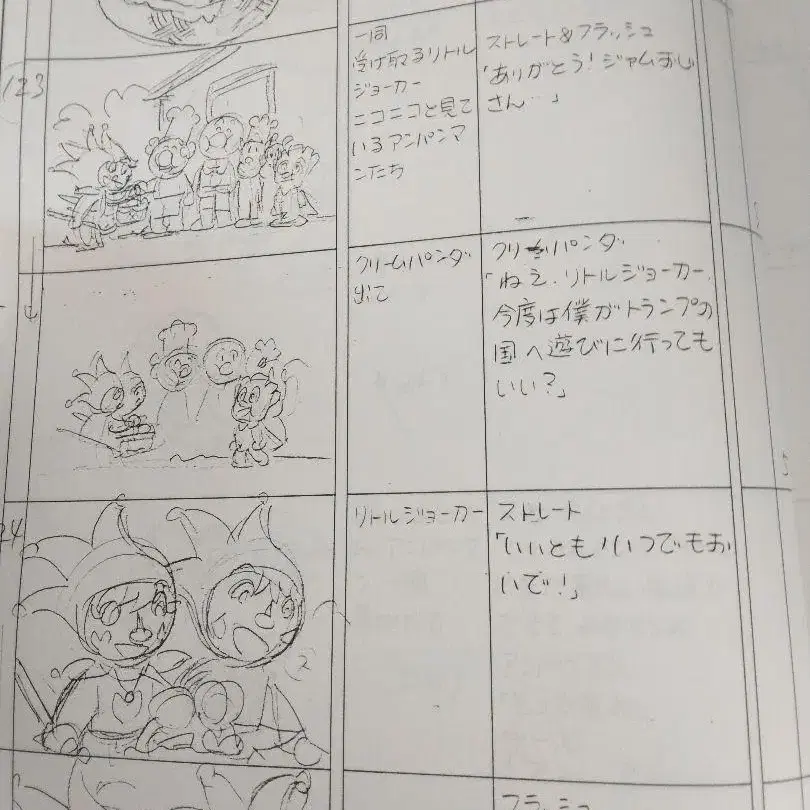 123
一同
受け取るリトル
ジョーカー
ニコニコと見て
いるアンパンマ
ンたち
ストレート&フラッシュ
「ありがとう!ジャムおじ
さん…」
クリームパンダ
出て
クリームパンダ
「ねえ、リトルジョーカー、
今度は僕がトランプの
国へ遊びに行っても
いい?」
24
リトルジョーカー
ストレート
「いいとも!いつでもお
いで!」
フラッシュ